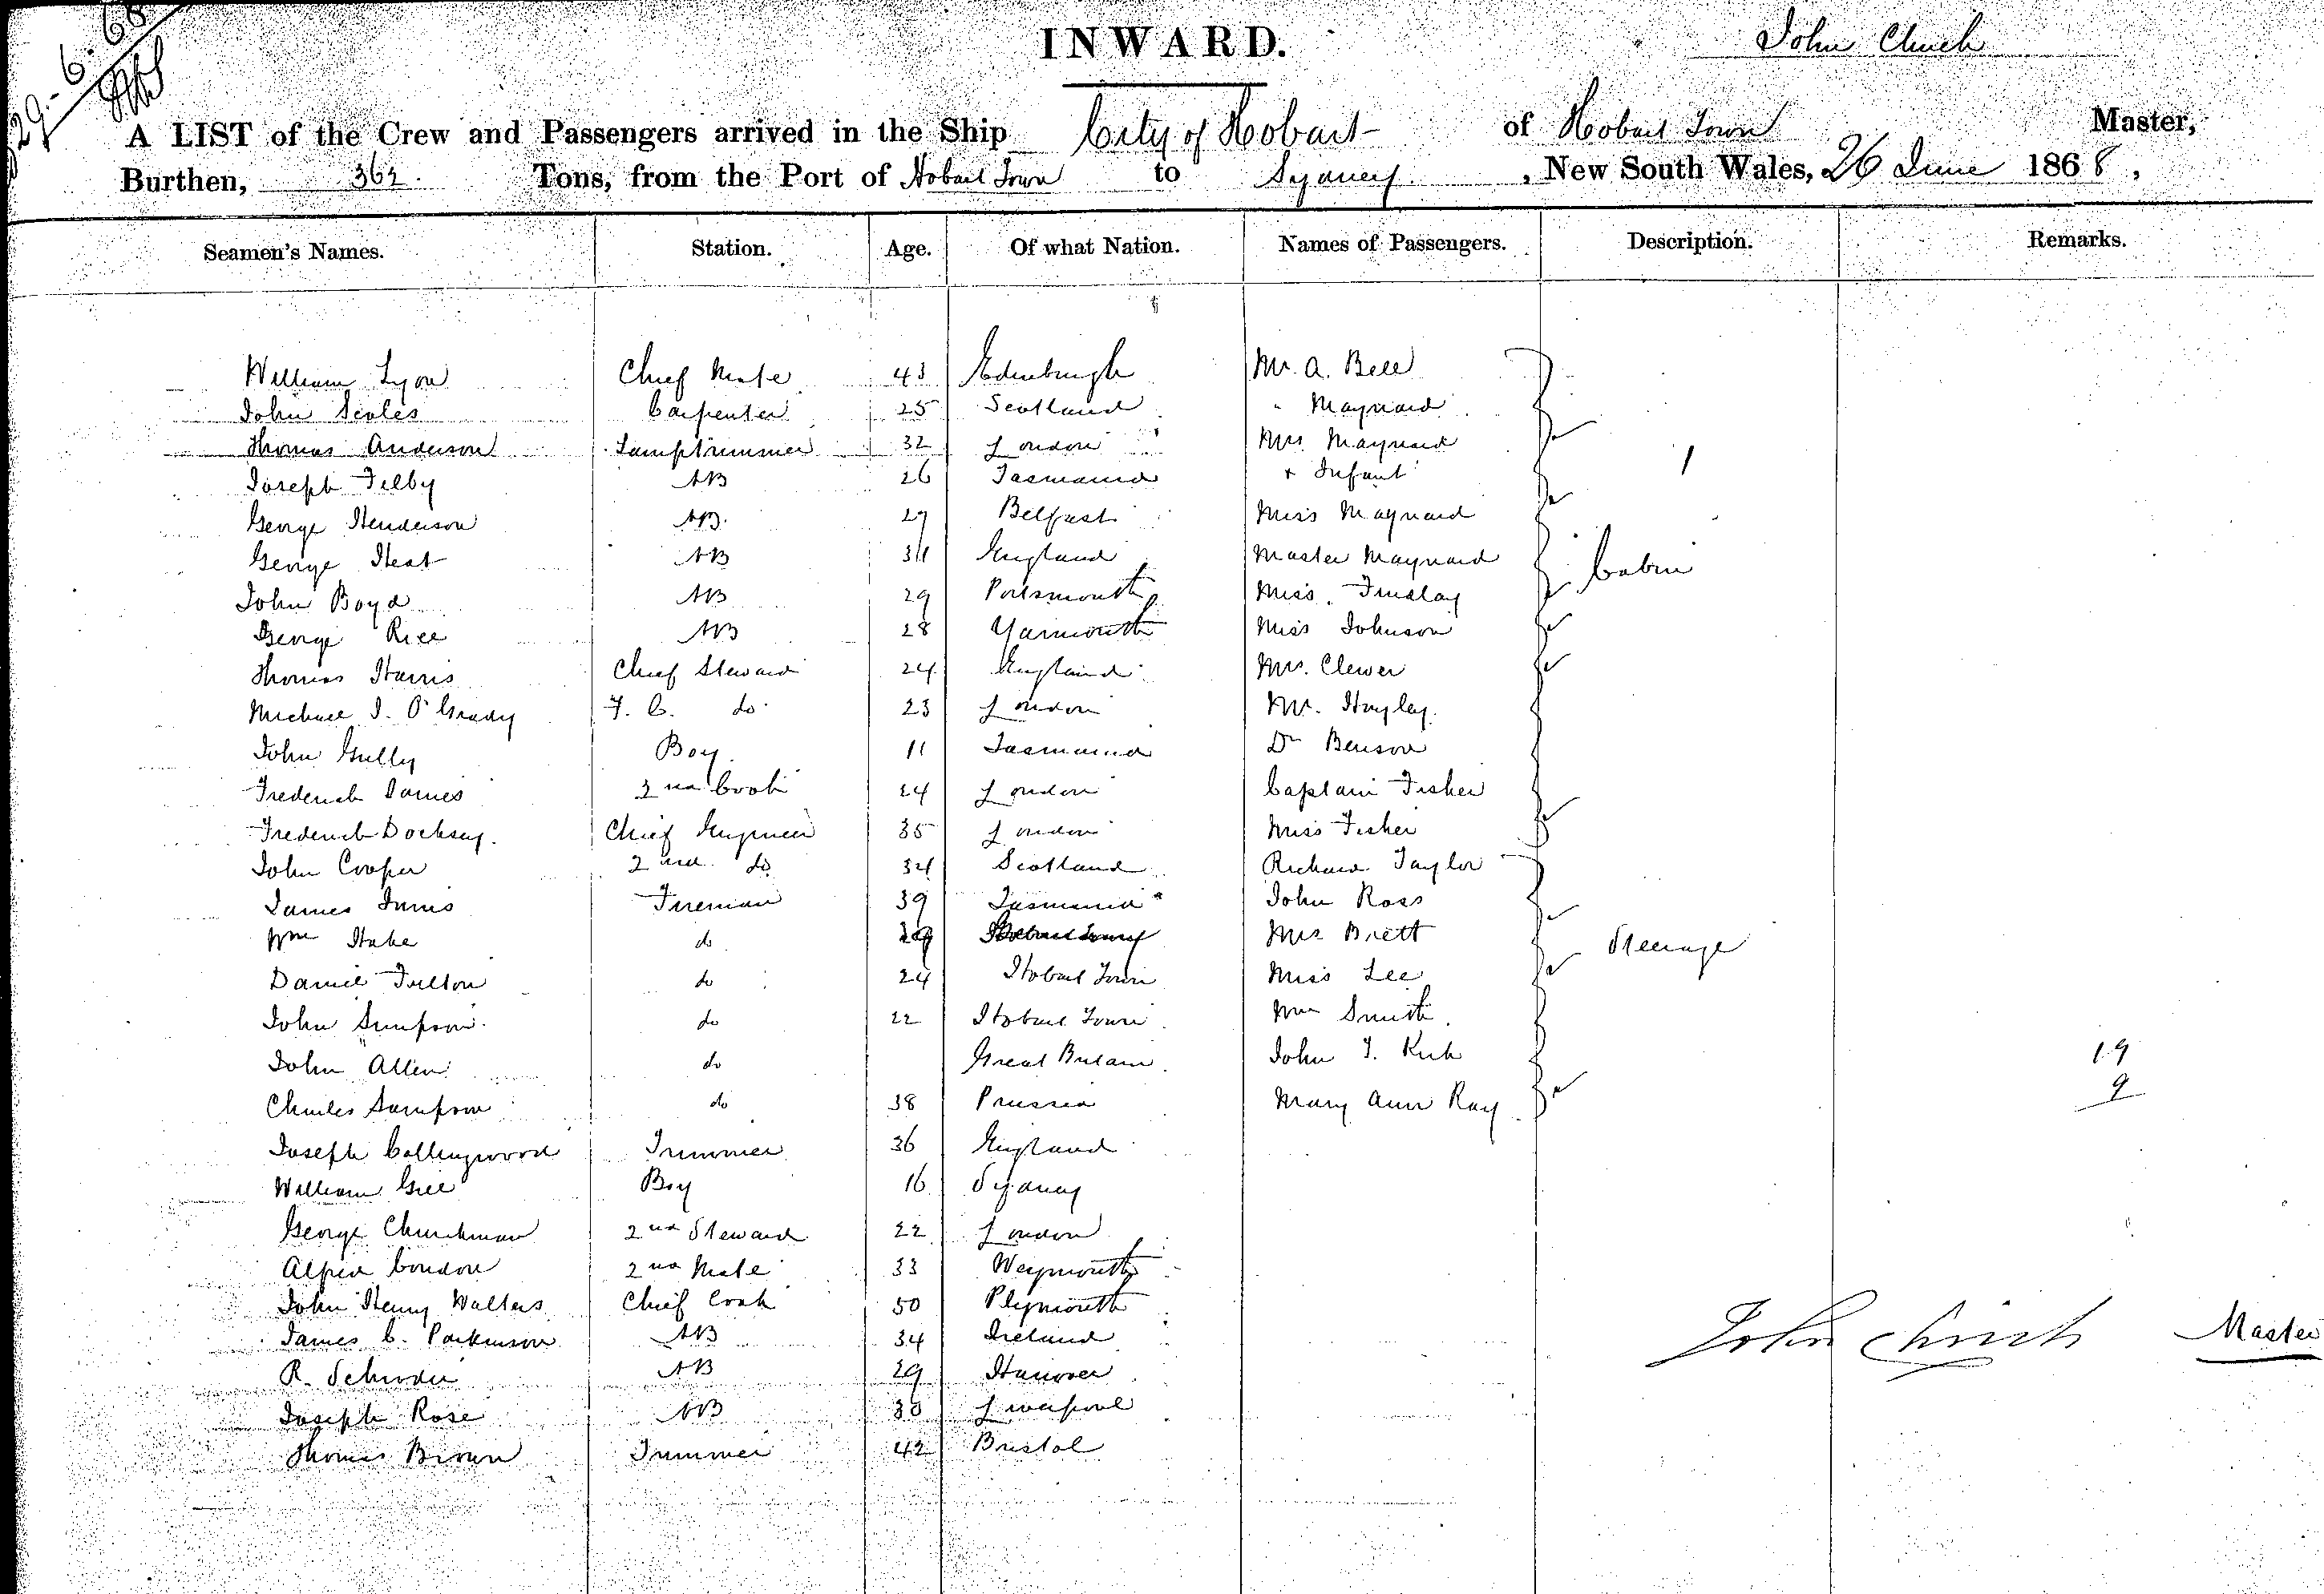 29-6-68
INWARD.
John Clinch
A LIST of the Crew and Passengers arrived in the Ship City of Hobart of Hobart Town Master,
Burthen, 362 Tons, from the Port of Hobart Town to Sydney, New South Wales, 26 June 1868,
Seamen's Names. Station. Age. Of what Nation. Names of Passengers. Description. Remarks.
William Lyon Chief Mate 43 Edinburgh Mr. A. Bell
John Scoles Carpenter 25 Scotland " Maynard
Thomas Anderson Lamptrimmer 32 London Mrs Maynard
Joseph Filby AB 26 Tasmania + Infant
George Henderson AB. 29 Belfast Miss Maynard
George Heat AB England Master Maynard Cabin
John Boyd AB 29 Portsmouth Miss Findlay
George Rice AB 28 Yarmouth Miss Johnson
Thomas Harris Chief Steward 24 England Mrs. Clewer
Michael J. O'Grady F. C. do 23 London Mr. Hayley.
John Gully Boy 11 Tasmania Dr Benson
Frederick James 2nd Cook 24 London Captain Fisher
Frederick Docksey. Chief Engineer 35 London Miss Fisher
John Cooper 2nd do 34 Scotland Richard Taylor
James Innis Fireman 39 Tasmania John Ross
Wm Hake do Mrs Brett Steerage
Daniel Fulton do 24 Hobart Town Miss Lee
John Simpson do 22 Hobart Town Wm Smith
John Allen do Great Britain John T. Kirk 19
Charles Sampson do 38 Prussia Mary Ann Ray 9
Joseph Collingwood Trimmer 36 England
William Gill Boy 16 Sydney
George Churchman 2nd Steward 22 London
Alfred Condon 2nd Mate 33 Weymouth
John Henry Walters Chief Cook 50 Plymouth
James C. Parkinson AB 34 Ireland John Clinch Master
R. Schroder AB 29 Hanover
Joseph Rose AB 30 Liverpool
Thomas Brown Trimmer 42 Bristol